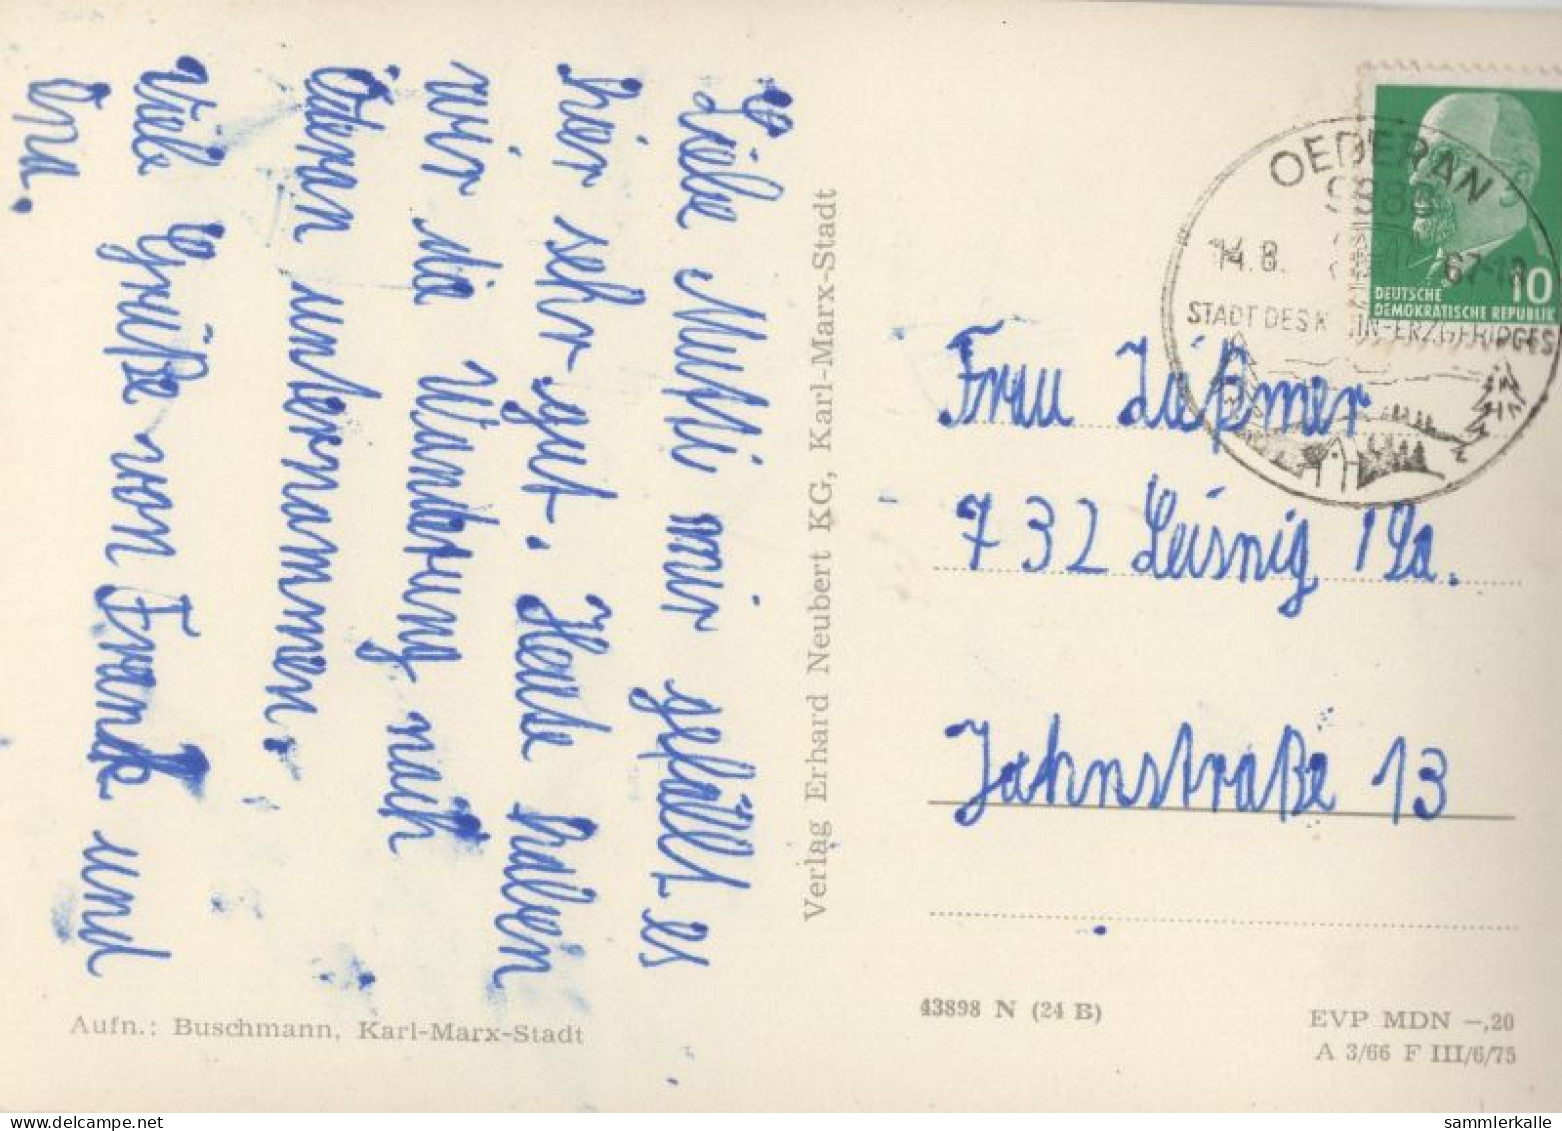 Liebe Mutti mir gefällt es
hier sehr gut. Heute haben
wir die Wanderung nach
Öderan unternammen.
Viele Grüße von Frank und
Ona.
Verlag Erhard Neubert KG, Karl-Marx-Stadt
Aufn.: Buschmann, Karl-Marx-Stadt
OEDERAN
9388
14.8. 67-18
STADT DES KLEIN-ERZGEBIRGES
10
DEUTSCHE
DEMOKRATISCHE REPUBLIK
Frau Läßmer
732 Leisnig 1 Sa.
Jahnstraße 13
43898 N (24 B)
EVP MDN –,20
A 3/66 F III/6/75
sammlerkalle